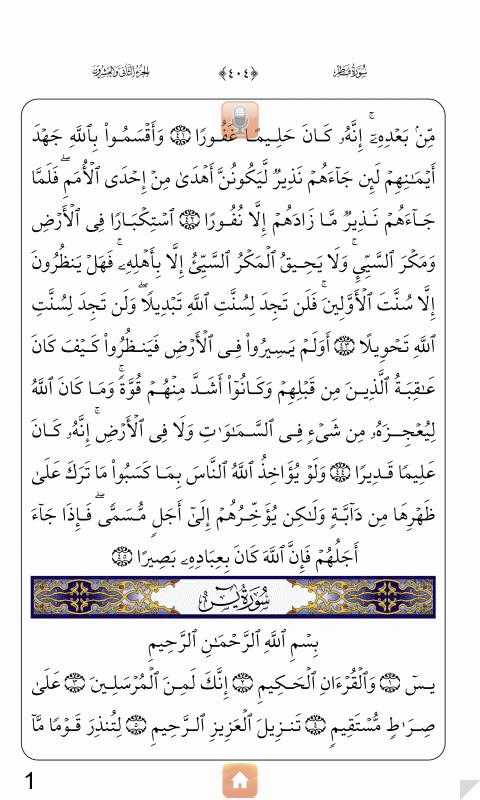 سُورَةُ فَاطِرٍ ﴿٤٠٤﴾ الجُزءُ الثَّانِي وَالعِشْرُونَ
مِّنۢ بَعْدِهِۦٓۚ إِنَّهُۥ كَانَ حَلِيمًا غَفُورًا ۝٤١ وَأَقْسَمُوا۟ بِٱللَّهِ جَهْدَ
أَيْمَـٰنِهِمْ لَئِن جَآءَهُمْ نَذِيرٌ لَّيَكُونُنَّ أَهْدَىٰ مِنْ إِحْدَى ٱلْأُمَمِۖ فَلَمَّا
جَآءَهُمْ نَذِيرٌ مَّا زَادَهُمْ إِلَّا نُفُورًا ۝٤٢ ٱسْتِكْبَارًا فِى ٱلْأَرْضِ
وَمَكْرَ ٱلسَّيِّئِۚ وَلَا يَحِيقُ ٱلْمَكْرُ ٱلسَّيِّئُ إِلَّا بِأَهْلِهِۦۚ فَهَلْ يَنظُرُونَ
إِلَّا سُنَّتَ ٱلْأَوَّلِينَۚ فَلَن تَجِدَ لِسُنَّتِ ٱللَّهِ تَبْدِيلًاۖ وَلَن تَجِدَ لِسُنَّتِ
ٱللَّهِ تَحْوِيلًا ۝٤٣ أَوَلَمْ يَسِيرُوا۟ فِى ٱلْأَرْضِ فَيَنظُرُوا۟ كَيْفَ كَانَ
عَـٰقِبَةُ ٱلَّذِينَ مِن قَبْلِهِمْ وَكَانُوٓا۟ أَشَدَّ مِنْهُمْ قُوَّةًۚ وَمَا كَانَ ٱللَّهُ
لِيُعْجِزَهُۥ مِن شَىْءٍ فِى ٱلسَّمَـٰوَٰتِ وَلَا فِى ٱلْأَرْضِۚ إِنَّهُۥ كَانَ
عَلِيمًا قَدِيرًا ۝٤٤ وَلَوْ يُؤَاخِذُ ٱللَّهُ ٱلنَّاسَ بِمَا كَسَبُوا۟ مَا تَرَكَ عَلَىٰ
ظَهْرِهَا مِن دَآبَّةٍ وَلَـٰكِن يُؤَخِّرُهُمْ إِلَىٰٓ أَجَلٍ مُّسَمًّىۖ فَإِذَا جَآءَ
أَجَلُهُمْ فَإِنَّ ٱللَّهَ كَانَ بِعِبَادِهِۦ بَصِيرًا ۝٤٥
سُورَةُ يسٓ
بِسْمِ ٱللَّهِ ٱلرَّحْمَـٰنِ ٱلرَّحِيمِ
يسٓ ۝١ وَٱلْقُرْءَانِ ٱلْحَكِيمِ ۝٢ إِنَّكَ لَمِنَ ٱلْمُرْسَلِينَ ۝٣ عَلَىٰ
صِرَٰطٍ مُّسْتَقِيمٍ ۝٤ تَنزِيلَ ٱلْعَزِيزِ ٱلرَّحِيمِ ۝٥ لِتُنذِرَ قَوْمًا مَّآ
1